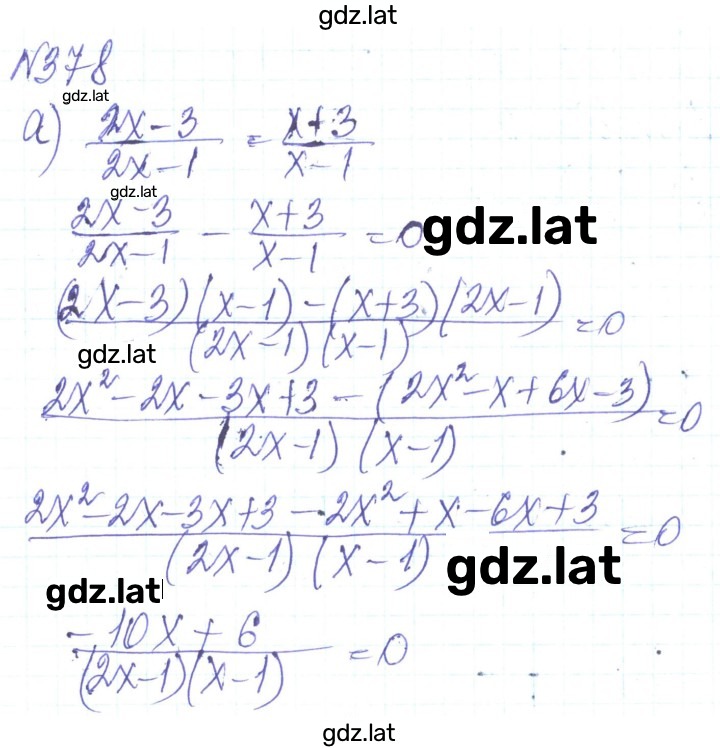 gdz.lat
№378
gdz.lat
а) (2x-3)/(2x-1) = (x+3)/(x-1)
gdz.lat
(2x-3)/(2x-1) - (x+3)/(x-1) = 0 gdz.lat
((2x-3)(x-1)-(x+3)(2x-1))/((2x-1)(x-1)) = 0
gdz.lat
(2x²-2x-3x+3-(2x²-x+6x-3))/((2x-1)(x-1)) = 0
(2x²-2x-3x+3-2x²+x-6x+3)/((2x-1)(x-1)) = 0
gdz.lat gdz.lat
(-10x+6)/((2x-1)(x-1)) = 0
gdz.lat